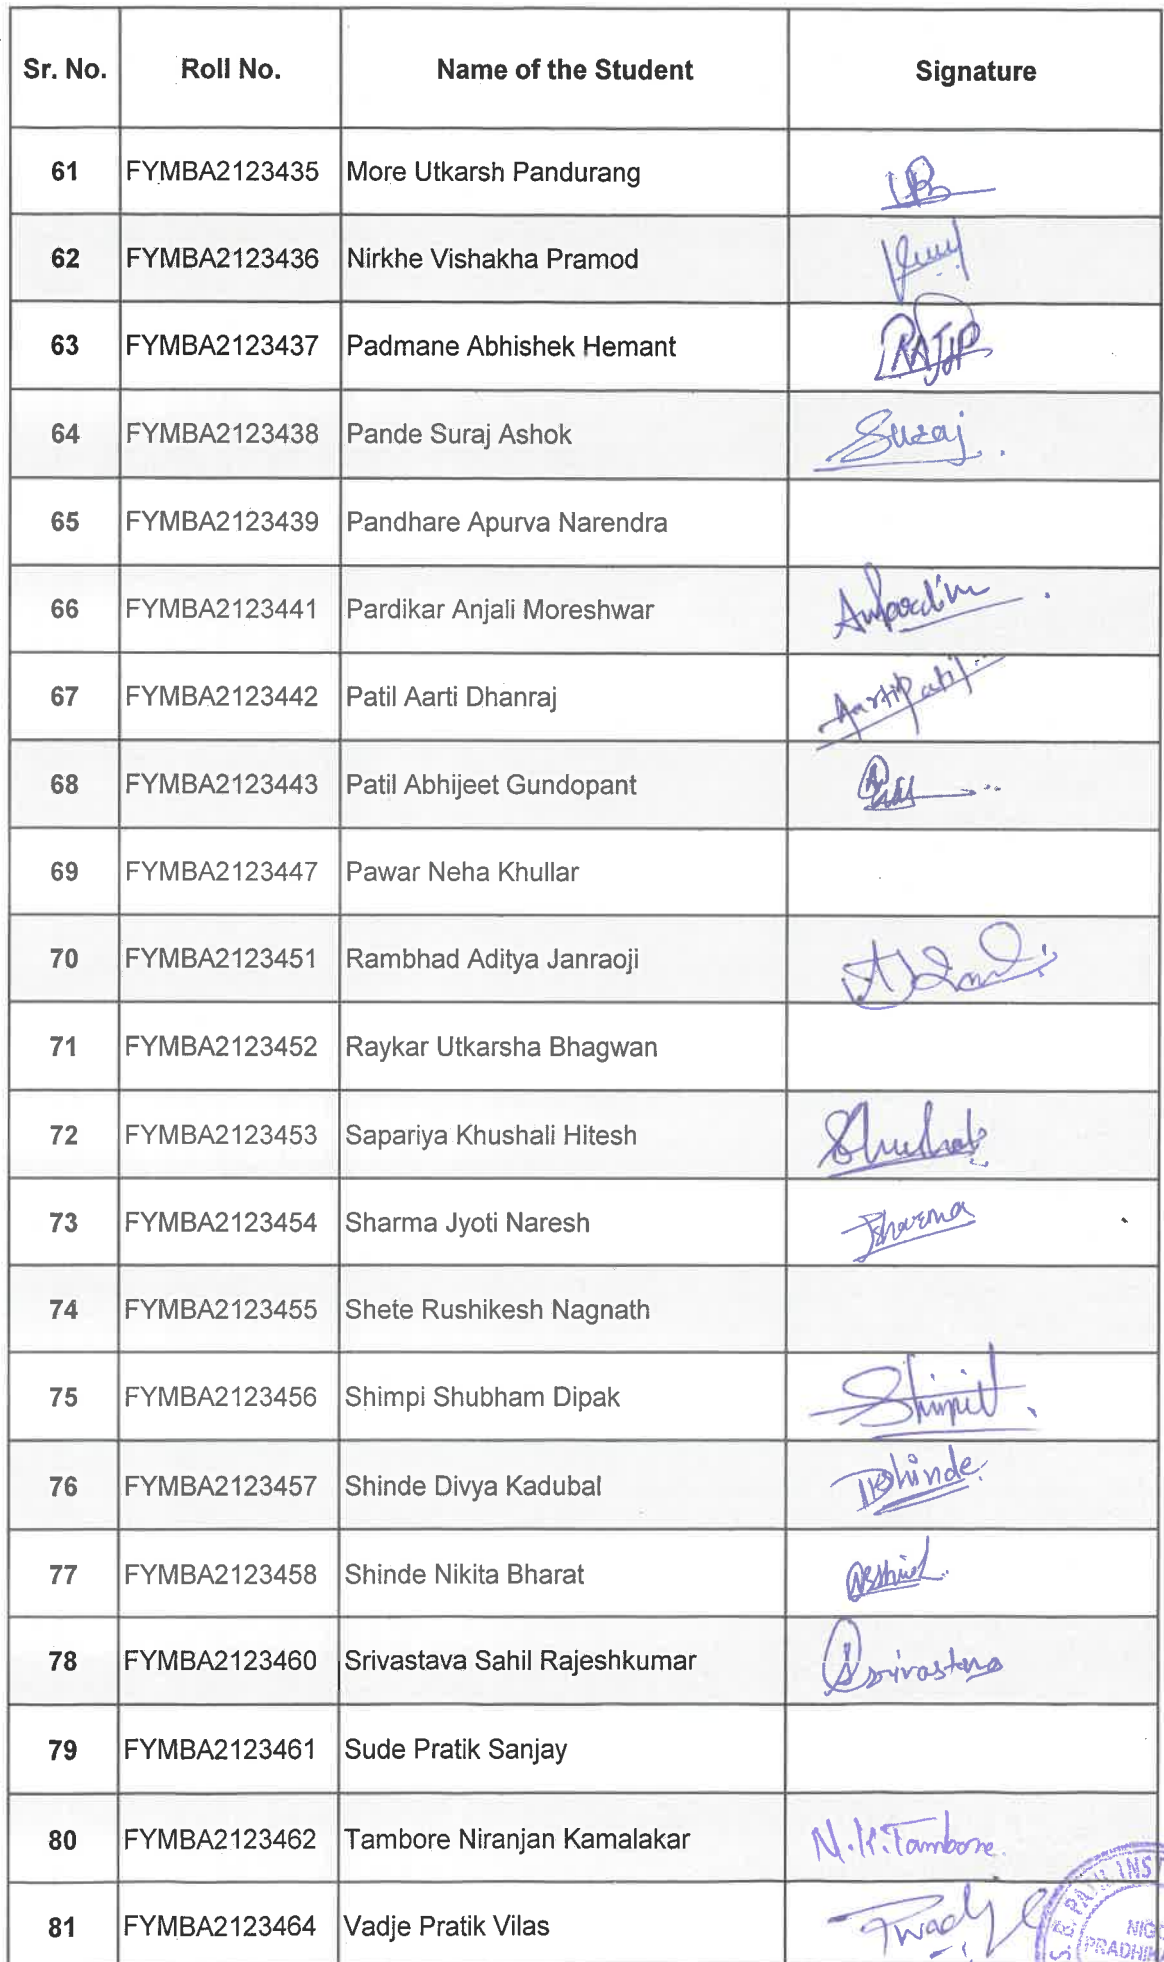 Sr. No. Roll No. Name of the Student Signature
61 FYMBA2123435 More Utkarsh Pandurang
62 FYMBA2123436 Nirkhe Vishakha Pramod
63 FYMBA2123437 Padmane Abhishek Hemant
64 FYMBA2123438 Pande Suraj Ashok Suraj
65 FYMBA2123439 Pandhare Apurva Narendra
66 FYMBA2123441 Pardikar Anjali Moreshwar
67 FYMBA2123442 Patil Aarti Dhanraj AartiPatil
68 FYMBA2123443 Patil Abhijeet Gundopant
69 FYMBA2123447 Pawar Neha Khullar
70 FYMBA2123451 Rambhad Aditya Janraoji
71 FYMBA2123452 Raykar Utkarsha Bhagwan
72 FYMBA2123453 Sapariya Khushali Hitesh
73 FYMBA2123454 Sharma Jyoti Naresh Jsharma
74 FYMBA2123455 Shete Rushikesh Nagnath
75 FYMBA2123456 Shimpi Shubham Dipak
76 FYMBA2123457 Shinde Divya Kadubal DShinde
77 FYMBA2123458 Shinde Nikita Bharat
78 FYMBA2123460 Srivastava Sahil Rajeshkumar
79 FYMBA2123461 Sude Pratik Sanjay
80 FYMBA2123462 Tambore Niranjan Kamalakar N.K.Tambore
81 FYMBA2123464 Vadje Pratik Vilas